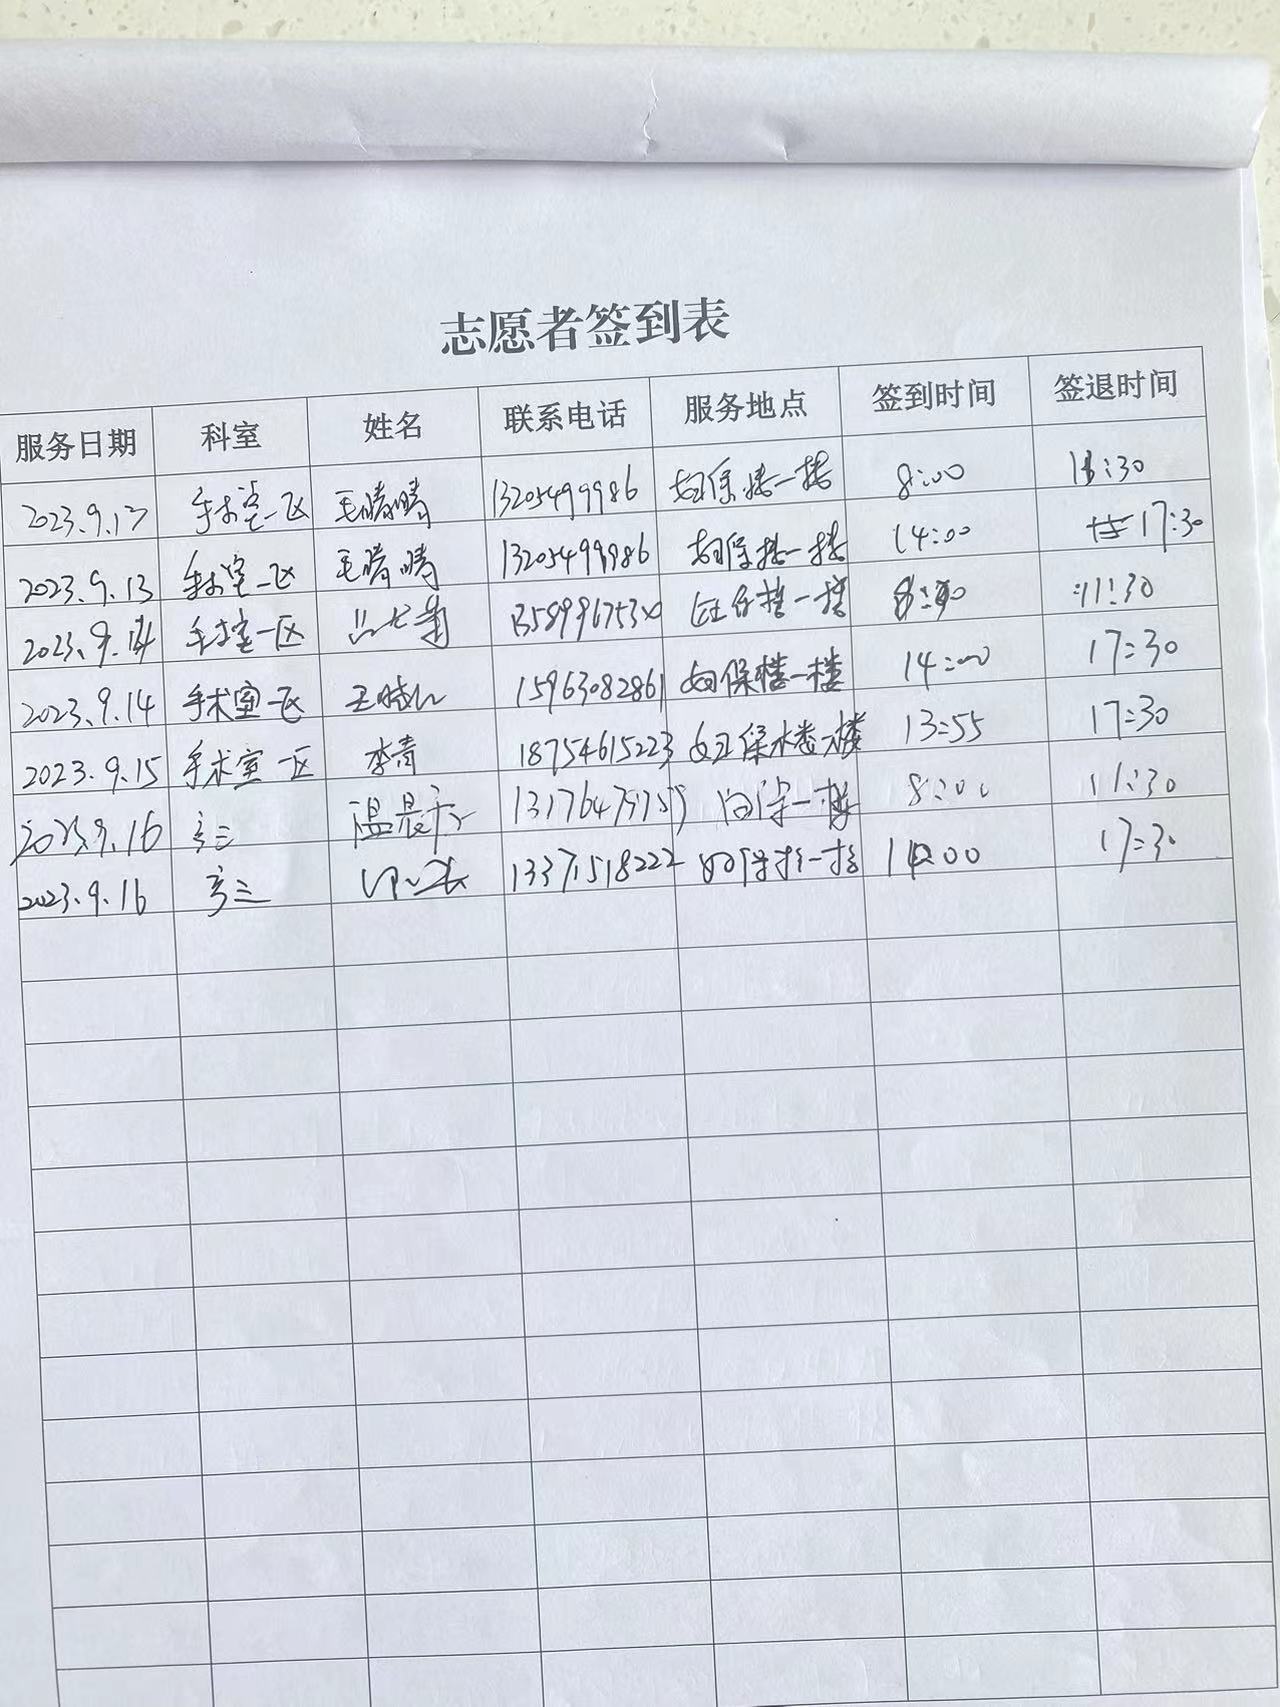 志愿者签到表
服务日期 科室 姓名 联系电话 服务地点 签到时间 签退时间
2023.9.13 手术室一区 毛晴晴 13205499986 妇保楼一楼 8:00 11:30
2023.9.13 手术室一区 毛晴晴 13205499986 妇保楼一楼 14:00 17:30
2023.9.14 手术室一区 妇保楼一楼 8:00 11:30
2023.9.14 手术室一区 15963082861 妇保楼一楼 14:00 17:30
2023.9.15 手术室一区 李青 18754615223 妇保楼一楼 13:55 17:30
2023.9.16 产三 温晨 一楼 8:00 11:30
2023.9.16 产三 13371518222 妇保楼一楼 14:00 17:30